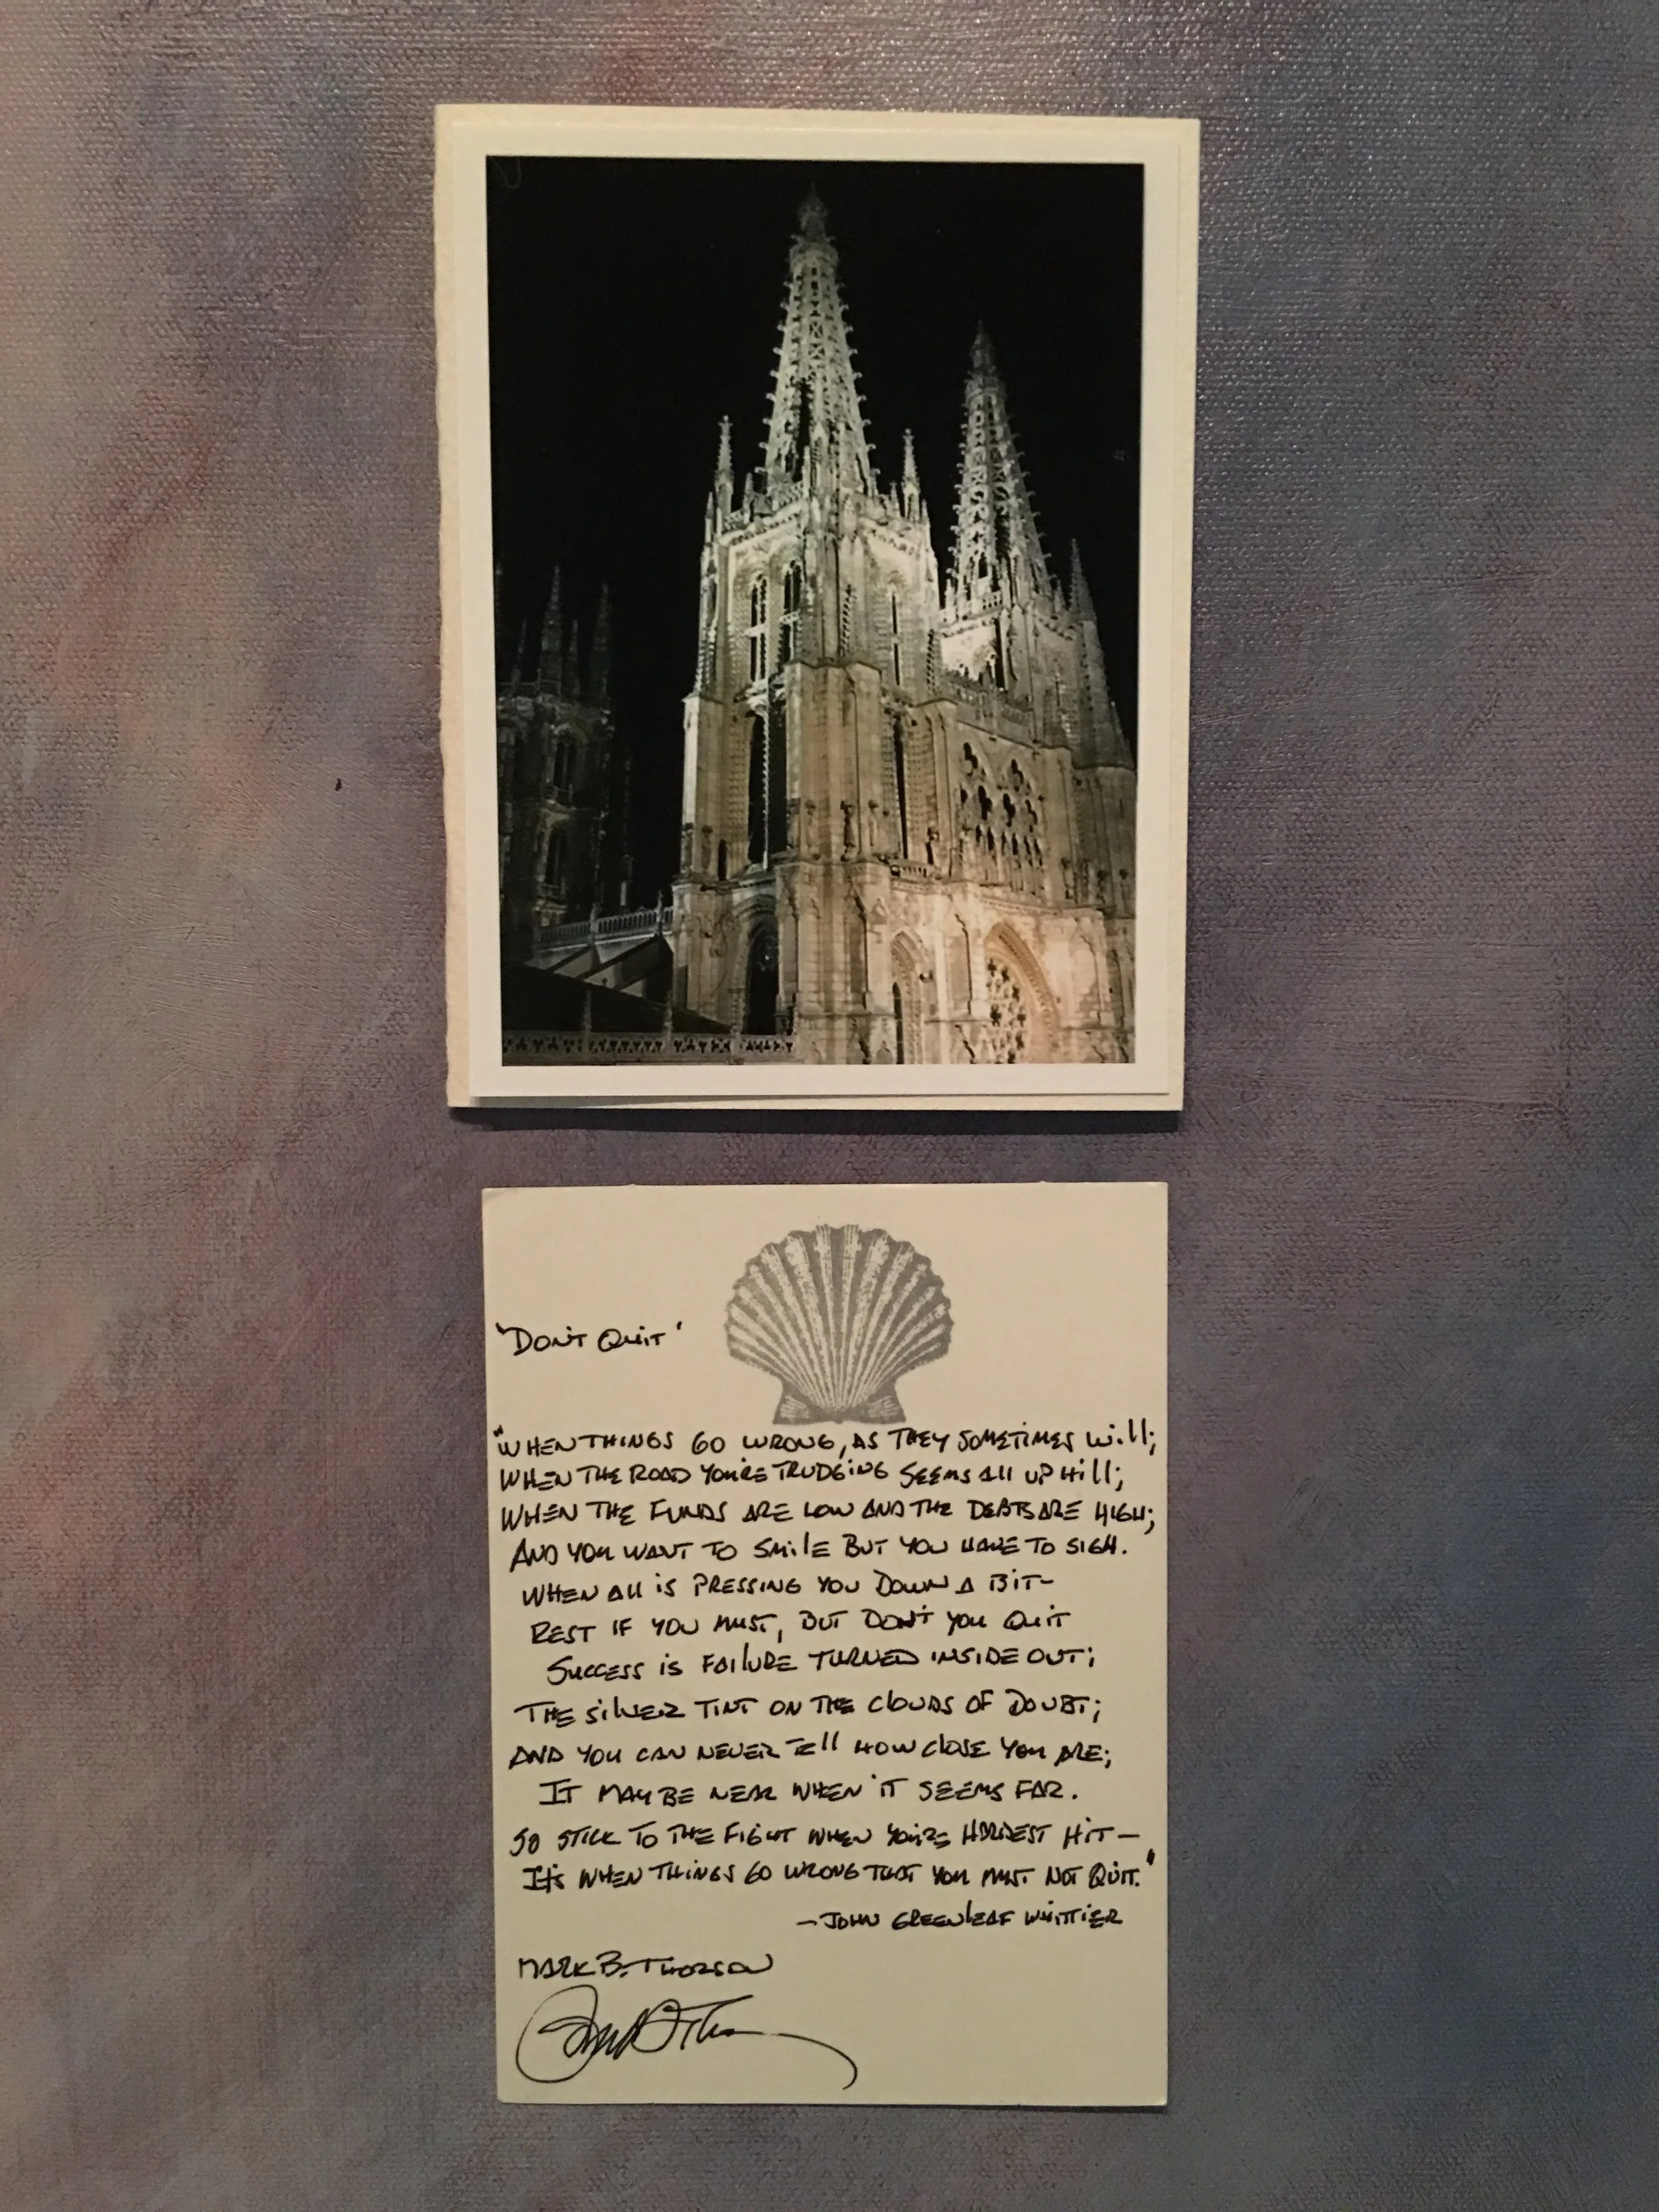 'DON'T QUIT'
"WHEN THINGS GO WRONG, AS THEY SOMETIMES WILL;
WHEN THE ROAD YOU'RE TRUDGING SEEMS ALL UP HILL;
WHEN THE FUNDS ARE LOW AND THE DEBTS ARE HIGH;
AND YOU WANT TO SMILE BUT YOU HAVE TO SIGH.
WHEN ALL IS PRESSING YOU DOWN A BIT-
REST IF YOU MUST, BUT DON'T YOU QUIT
SUCCESS IS FAILURE TURNED INSIDE OUT;
THE SILVER TINT ON THE CLOUDS OF DOUBT;
AND YOU CAN NEVER TELL HOW CLOSE YOU ARE;
IT MAY BE NEAR WHEN IT SEEMS FAR.
SO STICK TO THE FIGHT WHEN YOU'RE HARDEST HIT—
IT'S WHEN THINGS GO WRONG THAT YOU MUST NOT QUIT."
—JOHN GREENLEAF WHITTIER
MARK B. THORSON